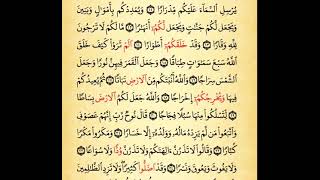 يُرْسِلِ السَّمَآءَ عَلَيْكُم مِّدْرَارًا وَيُمْدِدْكُم بِأَمْوَٰلٍ وَبَنِينَ
وَيَجْعَل لَّكُمْ جَنَّٰتٍ وَيَجْعَل لَّكُمُۥ أَنْهَٰرًا مَّا لَكُمْ لَا تَرْجُونَ
لِلَّهِ وَقَارًا وَقَدْ خَلَقَكُمُۥ أَطْوَارًا أَلَمْ تَرَوْا كَيْفَ خَلَقَ
اللَّهُ سَبْعَ سَمَٰوَٰتٍ طِبَاقًا وَجَعَلَ الْقَمَرَ فِيهِنَّ نُورًا وَجَعَلَ
الشَّمْسَ سِرَاجًا وَاللَّهُ أَنۢبَتَكُم مِّنَ الَارْضِ نَبَاتًا ثُمَّ يُعِيدُكُمْ
فِيهَا وَيُخْرِجُكُمُۥ إِخْرَاجًا وَاللَّهُ جَعَلَ لَكُمُ الَارْضَ بِسَاطًا
لِّتَسْلُكُوا مِنْهَا سُبُلًا فِجَاجًا قَالَ نُوحٌ رَّبِّ إِنَّهُمْ عَصَوْنِي
وَاتَّبَعُوا مَن لَّمْ يَزِدْهُ مَالُهُۥ وَوَلَدُهُۥٓ إِلَّا خَسَارًا وَمَكَرُوا مَكْرًا
كُبَّارًا وَقَالُوا لَا تَذَرُنَّ ءَالِهَتَكُمْ وَلَا تَذَرُنَّ وُدًّا وَلَا سُوَاعًا
وَلَا يَغُوثَ وَيَعُوقَ وَنَسْرًا وَقَدَ اضَلُّوا كَثِيرًا وَلَا تَزِدِ الظَّٰلِمِينَ